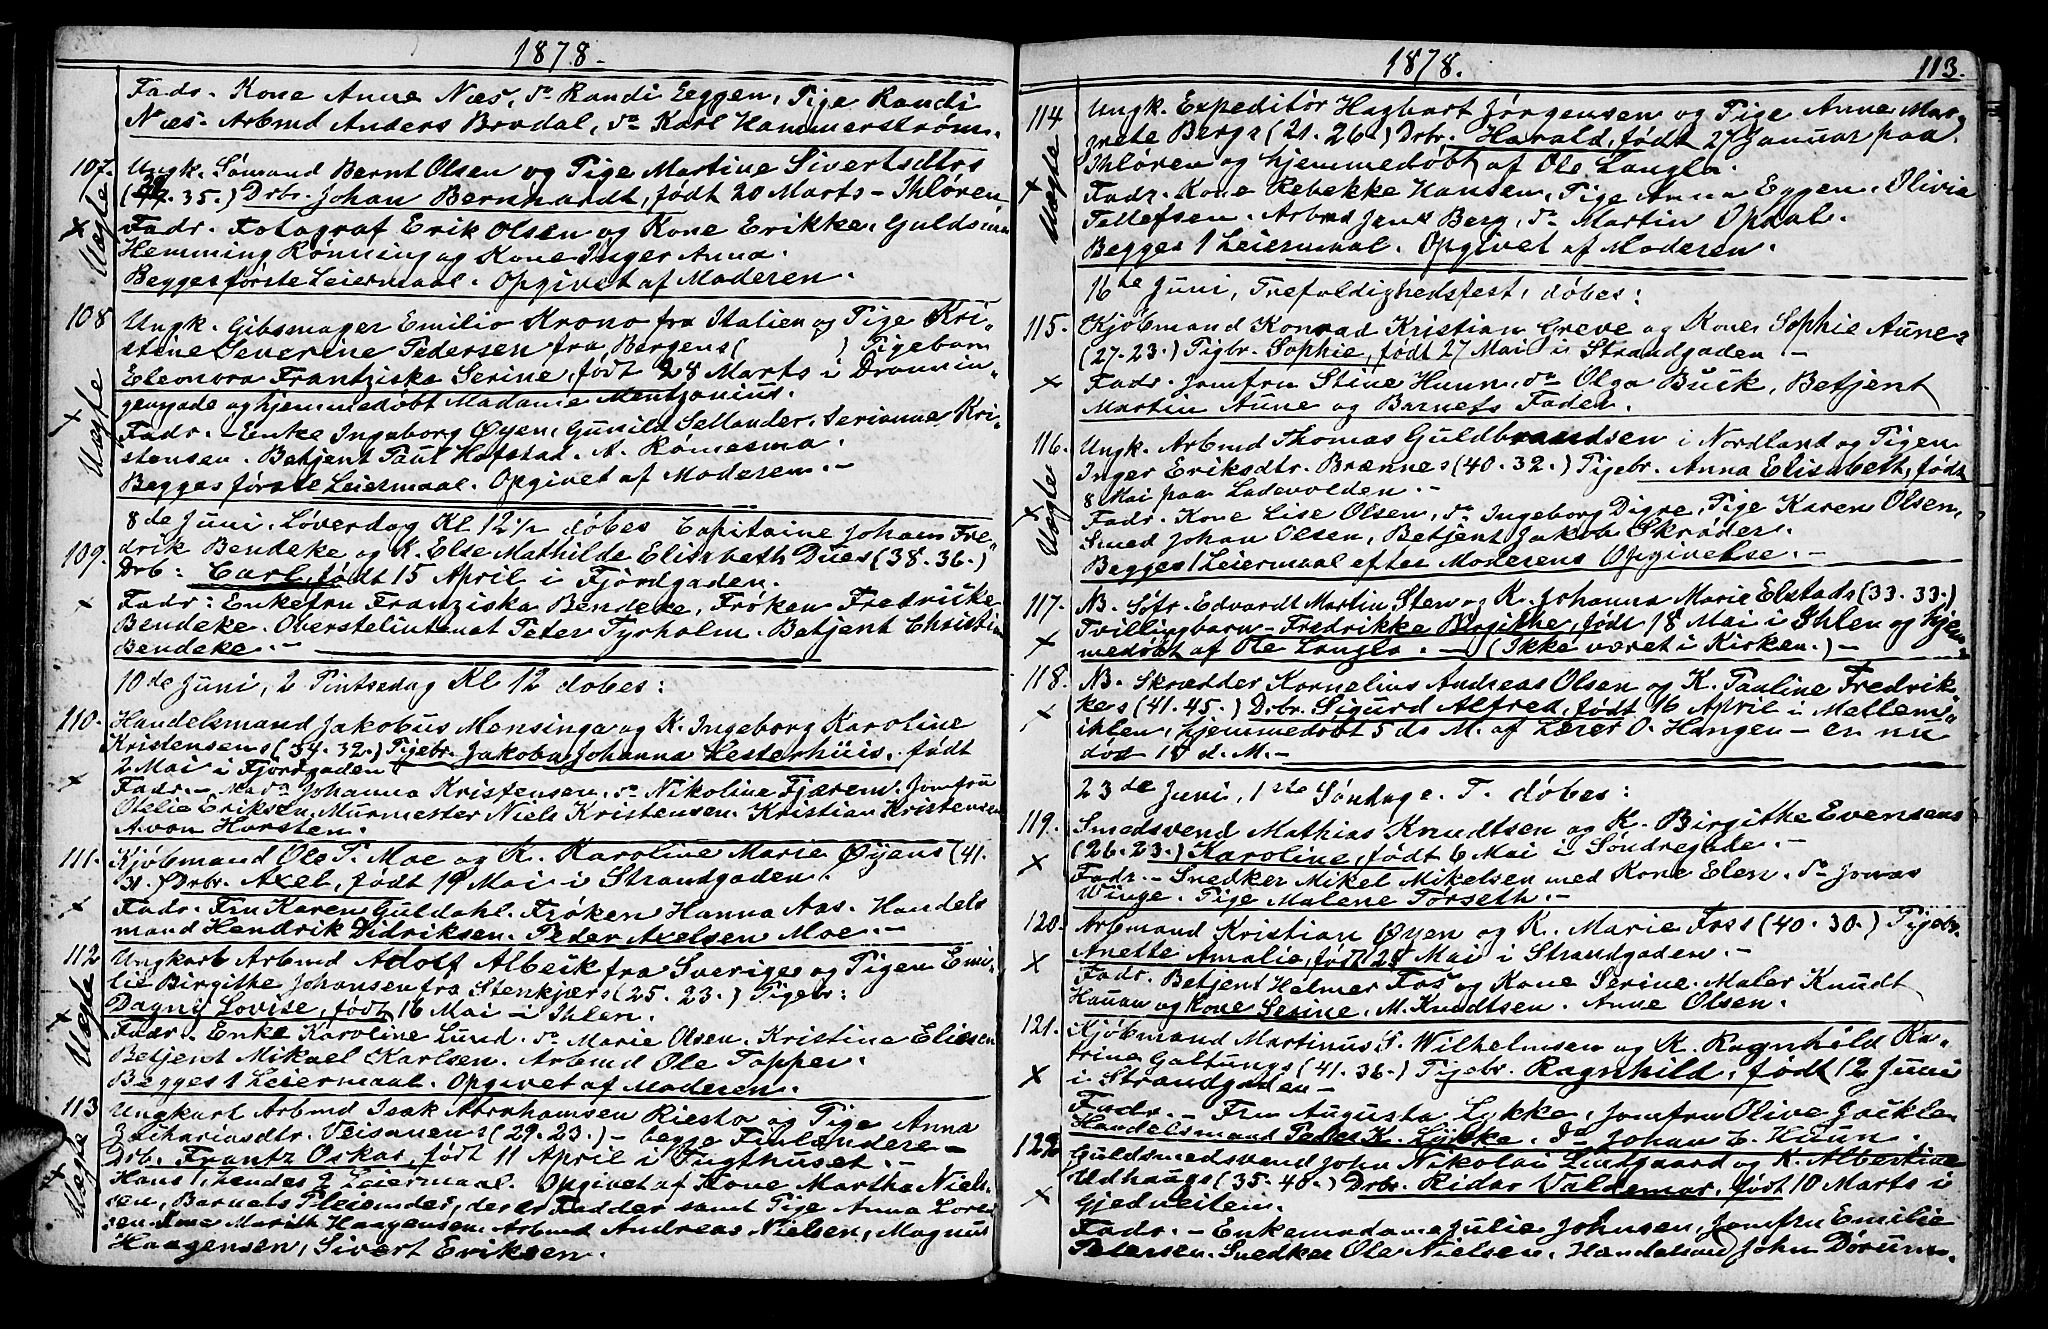 1878.
Fadr. Kone Anne Næs, do Randi Eggen, Tige Randi
Næs. Arbmd Anders Brodal, do Karl Hammerstrøm.
107. Ungk. Sømand Bernt Olsen og Tige Martine Sivertsdtrs
( 35.) Drbr. Johan Bernhardt, født 20 Marts - Ihløren
Uægte
Fadr. Fotograf Erik Olsen og Kone Erikke. Guldsm
Hemming Rønning og Kone Inger Anna.
Begges første Leiermaal. Opgivet af Moderen.
108 Ungk. Gibsmager Emilio Krono fra Italien og Tige Kri-
stine Severine Pedersen fra Bergens ( ) Tigebarn
Eleonora Frantziska Serine, født 28 Marts i Dronnin-
Uægte
gensgade og hjemmedøbt Madame Mentzonius.
Fadr. Enke Ingeborg Øyen, Gunila Sellander. Serianne Kri-
stensen. Betjent Paul Hofstad. A. Rømesma.
Begges første Leiermaal. Opgivet af Moderen. -
8de Juni. Løverdag Kl 12½ døbes Capitaine Johan Fre-
109. drik Bendeke og K. Else Mathilde Elisabeth Dues (38. 36.)
Drb: Carl, født 15 April i Fjordgaden.
x Fadr: Enkefru Franziska Bendeke, Frøken Fredrikke
Bendeke. Oberstelieutenat Peter Tyrholm. Betjent Christian
Bendeke. -
10de Juni, 2 Pintsedag Kl 12 døbes:
110. Handelsmand Jakobus Mensinga og K. Ingeborg Karoline
Kristensens (34. 32.) Tigebr. Jakoba Johanna Hesterhuis, født
2 Mai i Fjordgaden
x Fadr. - Mada Johanna Kristensen, do Nikoline Fjærem, Jomfru
Otelie Eriksen, Murmester Niels Kristensen. Kristian Kristensen
A. von Horsten.
111. Kjøbmand Ole T. Moe og K. Karoline Marie Øyens (41.
31.) Drbr. Axel, født 19 Mai i Strandgaden.
x Fadr. Fru Karen Guldahl. Frøken Hanna Aas. Handels
mand Hendrik Didriksen. Peder Axelsen Moe. -
112 Ungkarl Arbmd Adolf Albeik fra Sverige og Tigen Emi-
lie Birgithe Johansen fra Stenkjærs (25. 23.) Tigebr:
Uægte
Dagny Lovise, født 16 Mai - Ihlen.
Fadr. Enke Karoline Lund. do Marie Olsen. Kristine Eliesen
Betjent Mikael Karlsen. Arbmd Ole Topper.
Begges 1 Leiermaal. Opgivet af Moderen.
113 Ungkarl Arbmd Isak Abrahamsen Riesto og Tige Anna
Zachariasdtr. Veisanens (29. 23.) - begge Finlændere -
Drb. Frantz Oskar, født 11 April i Tugthuset. -
Uægte
Hans 1, hendes 2 Leiermaal. Opgivet af Kone Martha Niel-
sen, Barnets Pleiemoder, der er Fadder samt Tige Anna Loren
sen. Ane Marith Haagensen. Arbmd Andreas Nielsen, Magnus
Haagensen, Sivert Eriksen.
1878. 113.
114 Ungk. Expeditør Hagbart Jørgensen og Tige Anne Mar-
grete Bergs (21. 26.) Drbr. Harald, født 27 Januar paa
Uægte
Ihløren og hjemmedøbt af Ole Langlo.
Fadr. Kone Rebekke Hansen, Tige Anna Eggen. Olivia
Tellefsen. Arbmd Jens Berg, do Martin Opdal.
Begges 1 Leiermaal. Opgivet af Moderen.
16te Juni, Trefoldighedsfest, døbes:
115. Kjøbmand Konrad Kristian Greve og Kone Sophie Aunes
(27. 23.) Tigbr. Sophie, født 27 Mai i Strandgaden -
x Fadr. Jomfru Stine Huun, do Olga Buck, Betjent
Martin Aune og Barnets Fader.
116. Ungk. Arbmd Thomas Guldbrandsen i Nordland og Tigen
Inger Eriksdtr. Brænnes (40. 32.) Tigebr. Anna Elisabeth, født
Uægte
8 Mai paa Ladevolden. -
Fadr. Kone Lise Olsen, do Ingeborg Digre, Tige Karen Olsen,
Smed Johan Olsen, Betjent Jakob Skrøder.
Begges 1 Leiermaal efter Moderens Opgivelse. -
117. NB. Søfr. Edvardt Martin Sten og K. Johanna Marie Elstads (33. 33.)
Tvillingbarn - Fredrikke Birgithe, født 18 Mai i Ihlen og hjem-
x medøbt af Ole Langlo. - (Ikke været i Kirken.) -
118. NB. Skrædder Kornelius Andreas Olsen og K. Pauline Fredrik-
kes (41. 45.) Drbr. Sigurd Alfred, født 16 April i Mellem-
x ihlen, hjemmedøbt 5 ds M. af Lærer O. Hangen - er nu
død 10 d. M. -
23de Juni, 1ste Søndag e. T. døbes:
119. Smedsvend Mathias Knudtsen og K. Birgithe Evensens
(26. 23.) Karoline, født 6 Mai i Søndregate. -
x Fadr. - Snedker Mikel Mikelsen med Kone Elen. do Jonas
Winge. Tige Malene Forseth. -
120. Arbmand Kristian Øyen og K. Marie Foss (40. 30.) Tigebr.
Anette Amalie, født 25 Mai i Strandgaden. -
x Fadr. Betjent Helmer Fos og Kone Serine. Maler Knudt
Hauan og Kone Serine. M. Knudtsen. Anne Olsen.
121. Kjøbmand Martinus S. Wilhelmsen og K. Ragnhild Ka-
trine Galtungs (41. 36.) Tigebr. Ragnhild, født 12 Juni
x i Strandgaden -
Fadr. - Fru Augusta Lykke, Jomfru Olive Jacklen
Handelsmand Peder K. Lykke. do Johan E. Huun.
122 Guldsmedsvend John Nikolai Lundgaard og K. Albertine
Udhaugs (35. 40.) Drbr. Ridar Valdemar, født 10 Marts i
x Gjedveiten.
Fadr. - Enkemadame Julie Johnsen, Jomfru Emilie
Petersen. Snedker Ole Nielsen. Handelsmd John Dørum.